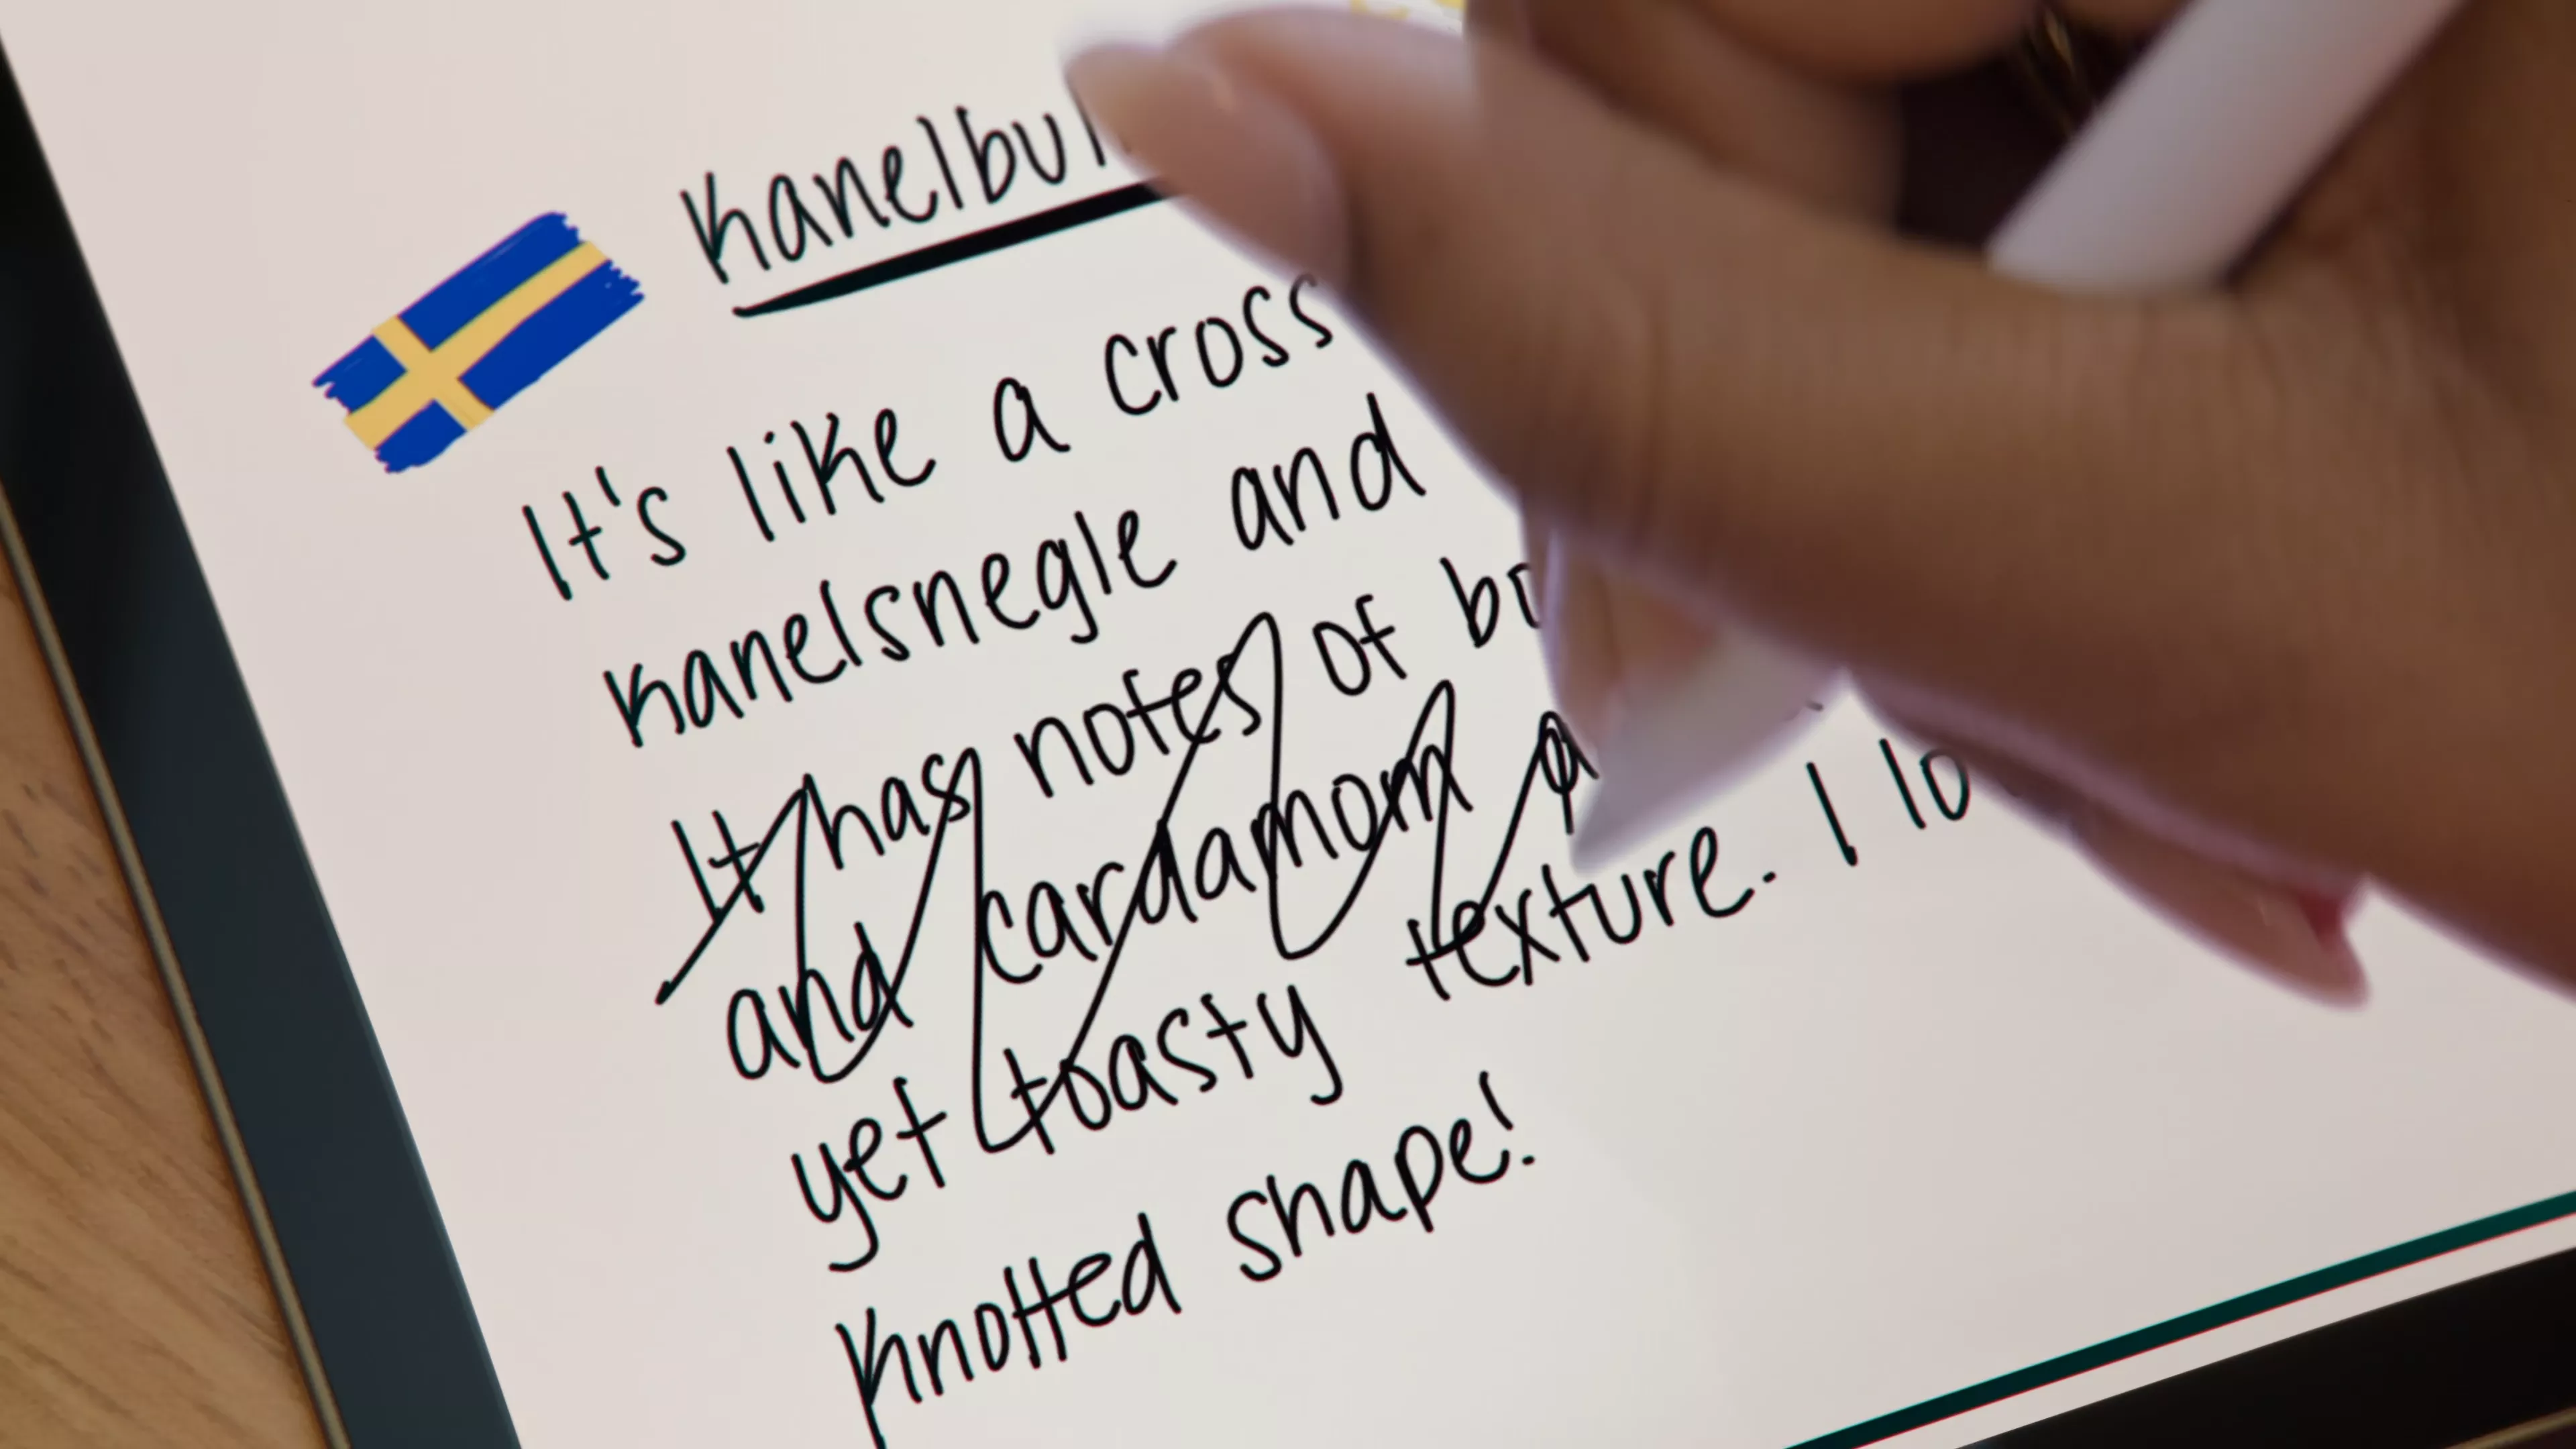 It's like a cross
kanelsnegle and
It has notes of
and cardamom
yet toasty texture. I
knotted shape!